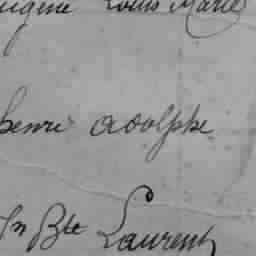 Eugène Louis Marie
henri adolphe
Jn Bte Laurent